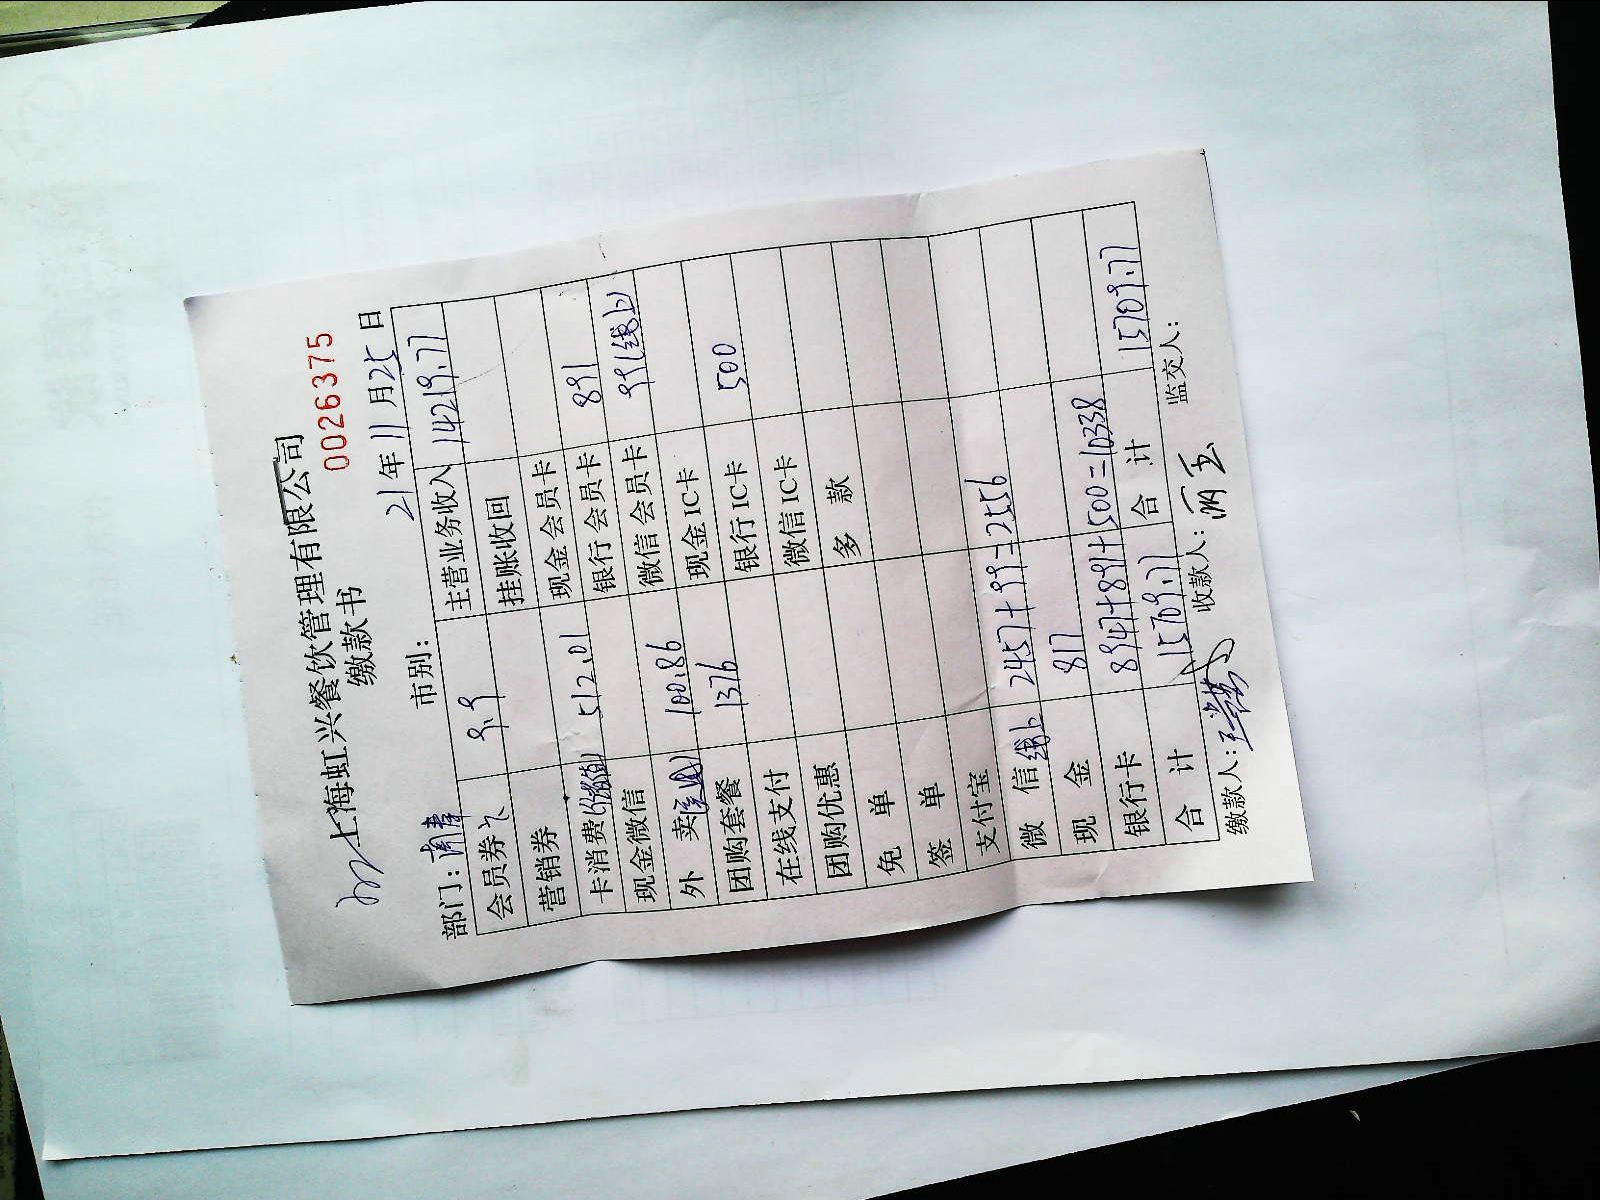 上海虹兴餐饮管理有限公司
0026375
缴款书
21年11月25日
部门： 市别：
会员券 9.9 主营业务收入 14219.77
营销券 挂账收回
卡消费(储值) 512.01 现金会员卡
现金微信 银行会员卡 891
外 卖 100.86 微信会员卡 99(线上)
团购套餐 1376 现金IC卡
在线支付 银行IC卡 500
团购优惠 微信IC卡
免 单 多 款
签 单
支付宝
微 信线上 2457+99=2556
现 金 817
银行卡 8947+891+500=10338
合 计 15709.77 合 计 15709.77
缴款人： 收款人： 监交人：